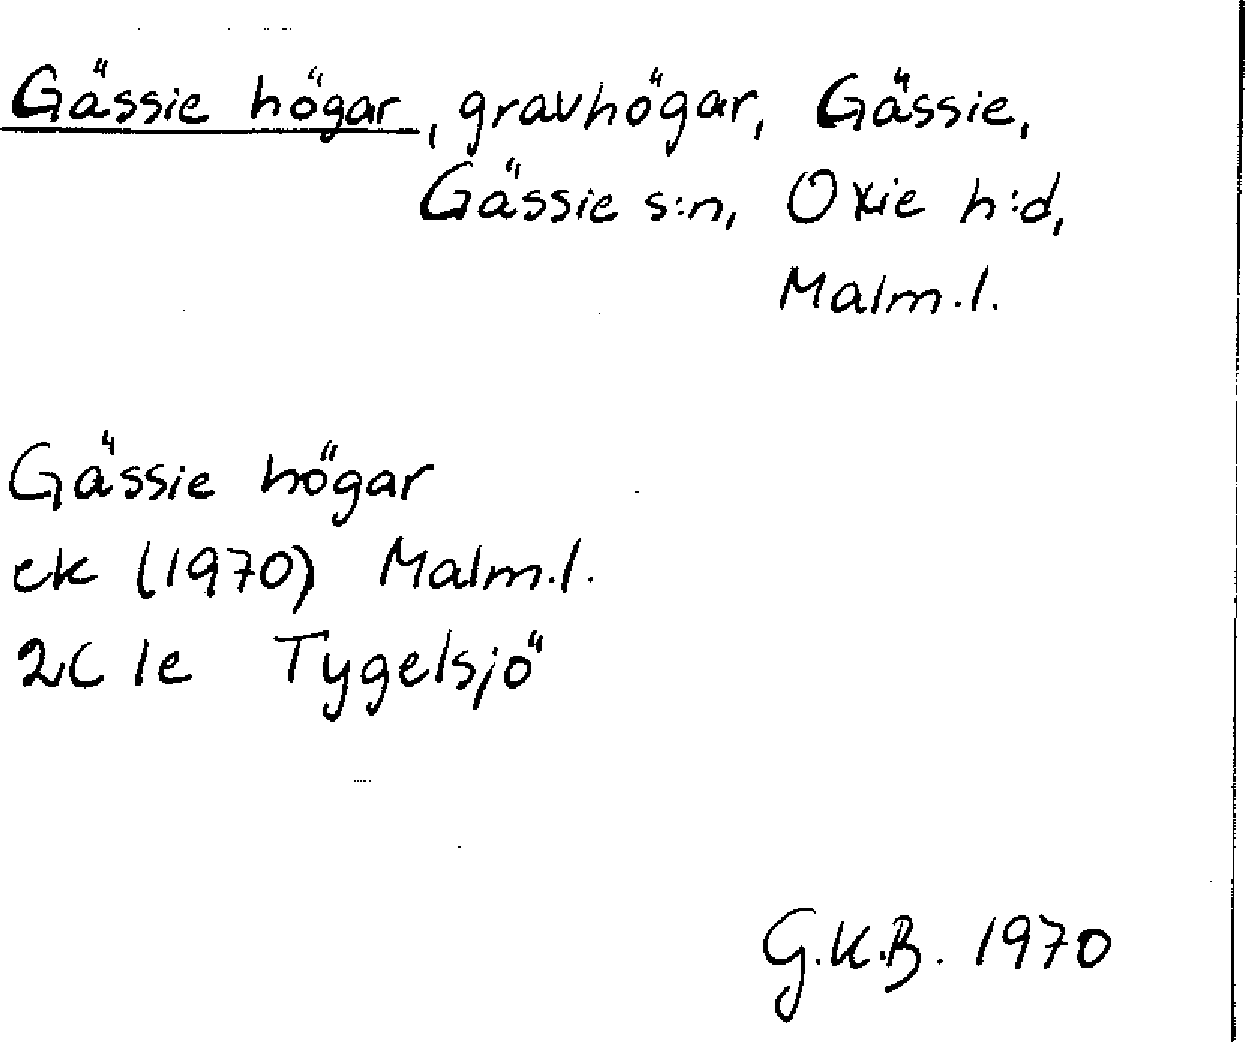 Gässie högar, gravhögar, Gässie,
Gässie s:n, Oxie h:d,
Malm.l.
Gässie högar
ek (1970) Malm.l.
2C 1e Tygelsjö
G.K.B. 1970